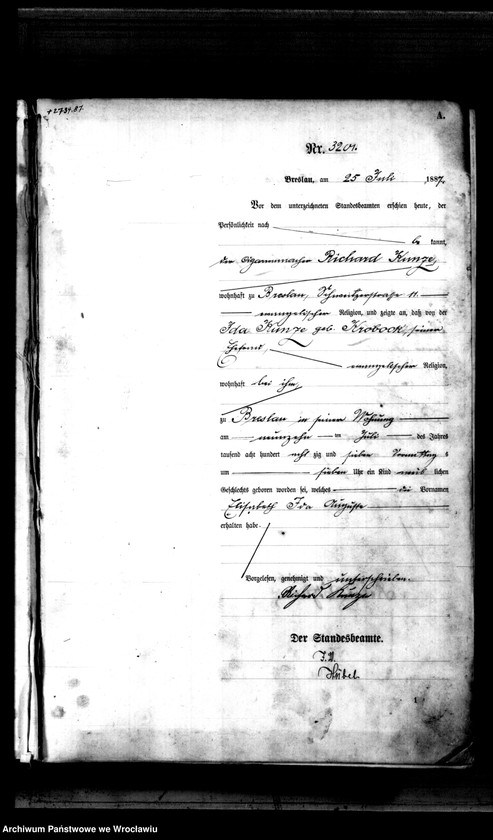 +2734.87.
A.
Nr. 3201.
Breslau, am 25 Juli 1887.
Vor dem unterzeichneten Standesbeamten erschien heute, der
Persönlichkeit nach
be kannt,
der Cigarrenmacher Richard Kunze,
wohnhaft zu Breslau, 11
evangelischer Religion, und zeigte an, daß von der
Ida Kunze geb. Krobock, seiner
Ehefrau,
evangelischer Religion,
wohnhaft bei ihm,
zu Breslau in seiner Wohnung
am neunzehn ten Juli des Jahres
tausend acht hundert acht zig und sieben Vormittag s
um sieben Uhr ein Kind weib lichen
Geschlechts geboren worden sei, welches die Vornamen
Elisabeth Ida Auguste
erhalten habe.
Vorgelesen, genehmigt und unterschrieben.
Richard Kunze
Der Standesbeamte.
J.V.
Archiwum Państwowe we Wrocławiu